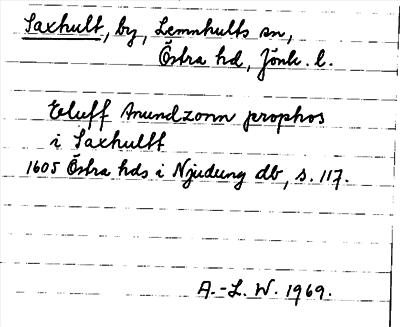 Saxhult, by, Lemnhults sn,
Östra hd, Jönk. l.
Eluff Anundzonn prophos
i Saxhultt
1605 Östra hds i Njudung db, s. 117.
A.-L. W. 1969.